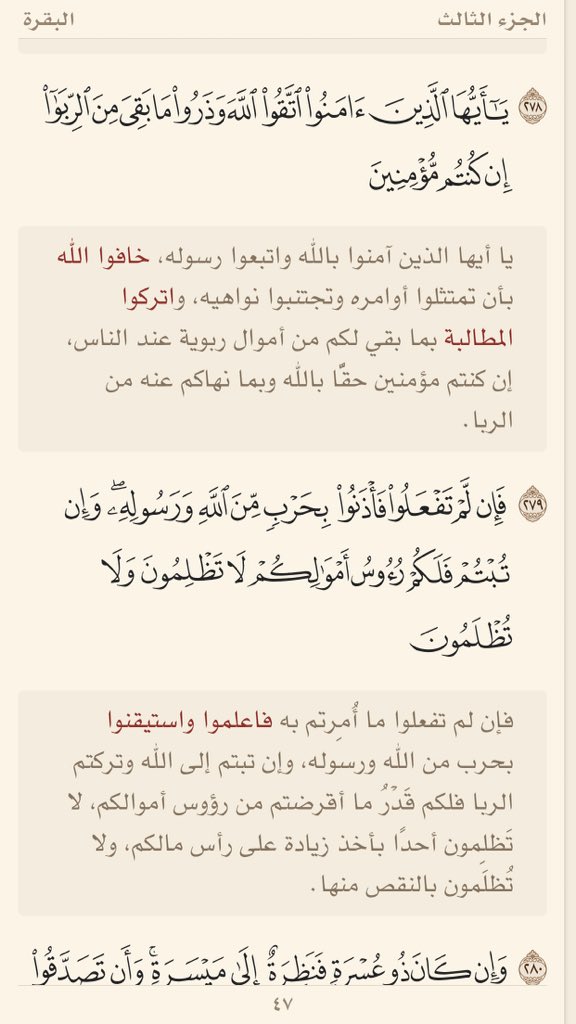 الجزء الثالث
البقرة
٢٧٨ يَـٰٓأَيُّهَا ٱلَّذِينَ ءَامَنُوا۟ ٱتَّقُوا۟ ٱللَّهَ وَذَرُوا۟ مَا بَقِىَ مِنَ ٱلرِّبَوٰٓا۟
إِن كُنتُم مُّؤْمِنِينَ
يا أيها الذين آمنوا بالله واتبعوا رسوله، خافوا الله
بأن تمتثلوا أوامره وتجتنبوا نواهيه، واتركوا
المطالبة بما بقي لكم من أموال ربوية عند الناس،
إن كنتم مؤمنين حقًّا بالله وبما نهاكم عنه من
الربا.
٢٧٩ فَإِن لَّمْ تَفْعَلُوا۟ فَأْذَنُوا۟ بِحَرْبٍ مِّنَ ٱللَّهِ وَرَسُولِهِۦ ۖ وَإِن
تُبْتُمْ فَلَكُمْ رُءُوسُ أَمْوَٰلِكُمْ لَا تَظْلِمُونَ وَلَا
تُظْلَمُونَ
فإن لم تفعلوا ما أُمِرتم به فاعلموا واستيقنوا
بحرب من الله ورسوله، وإن تبتم إلى الله وتركتم
الربا فلكم قَدْرُ ما أقرضتم من رؤوس أموالكم، لا
تَظلِمون أحدًا بأخذ زيادة على رأس مالكم، ولا
تُظلَمون بالنقص منها.
٢٨٠ وَإِن كَانَ ذُو عُسْرَةٍ فَنَظِرَةٌ إِلَىٰ مَيْسَرَةٍ ۚ وَأَن تَصَدَّقُوا۟
٤٧